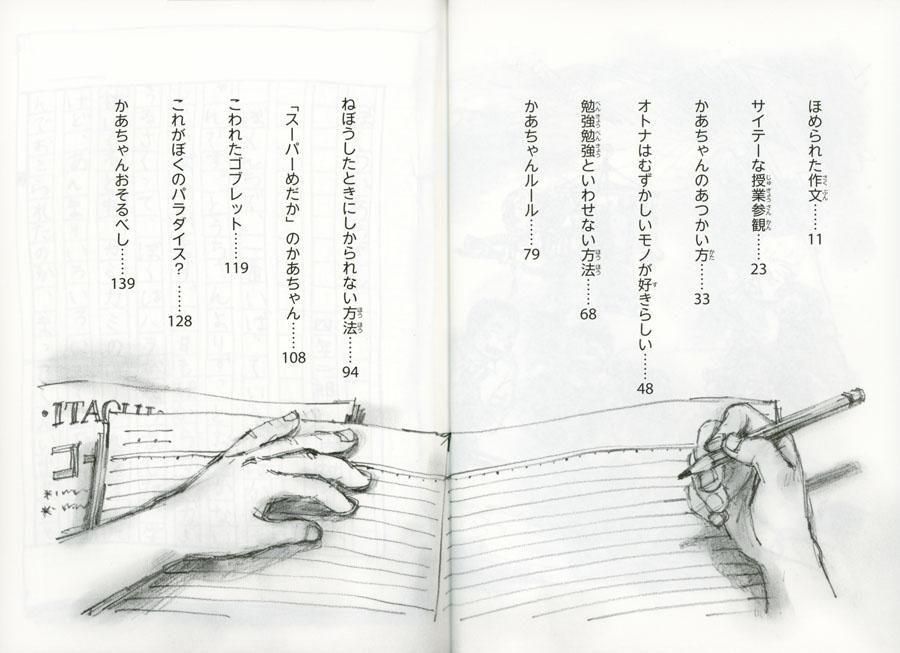 ほめられた作文……11
サイテーな授業参観……23
かあちゃんのあつかい方……33
オトナはむずかしいモノが好きらしい……48
勉強勉強といわせない方法……68
かあちゃんルール……79
ねぼうしたときにしかられない方法……94
「スーパーめだか」のかあちゃん……108
こわれたゴブレット……119
これがぼくのパラダイス？……128
かあちゃんおそるべし……139